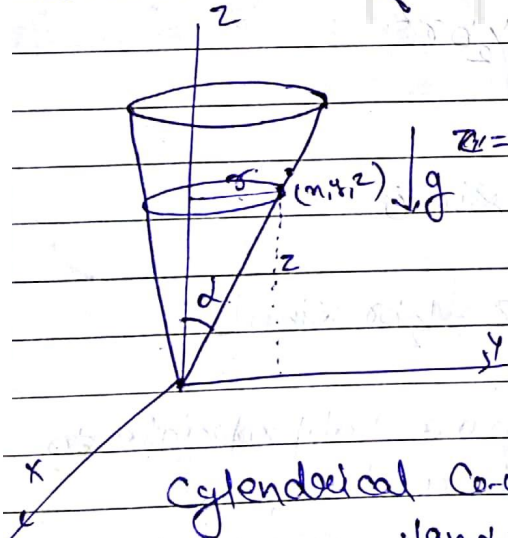 z
r (x, y, z)
g
z
α
y
x
Cylenderical Co-